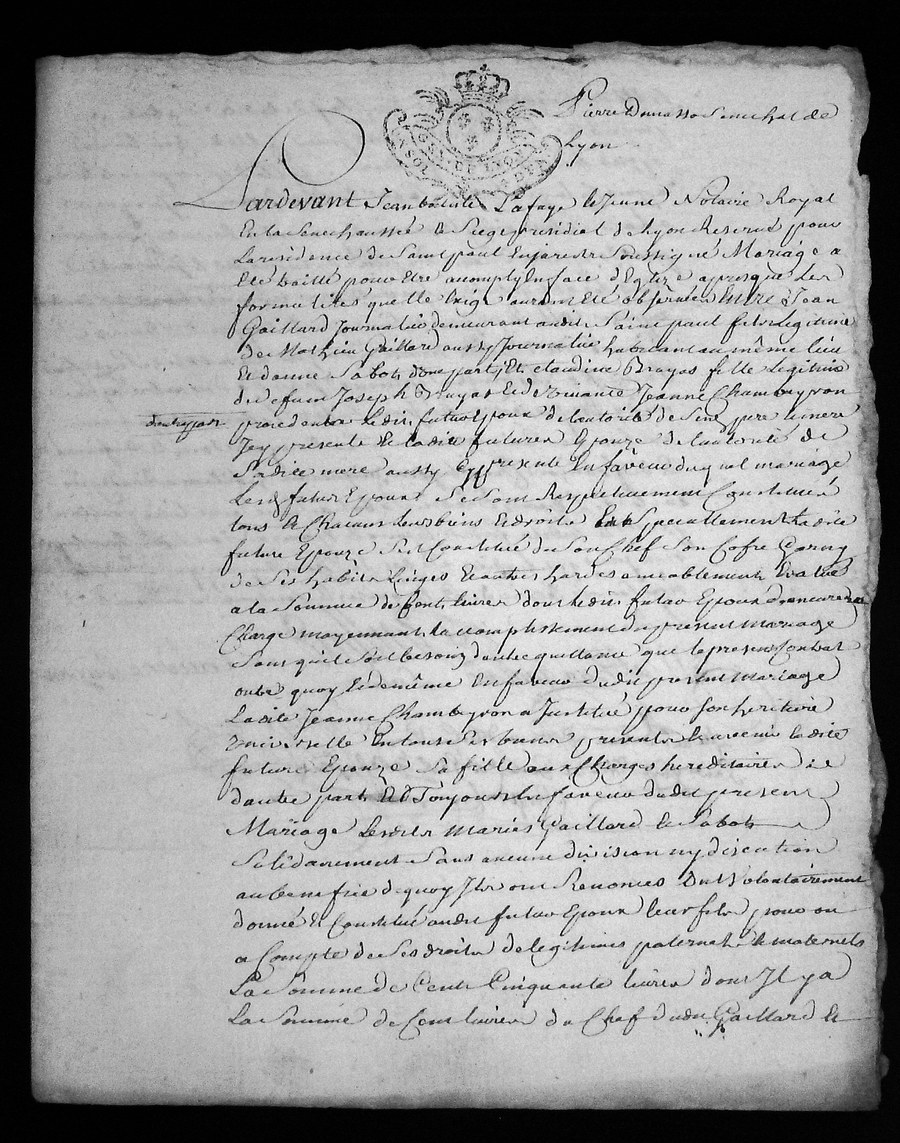 Pierre Dumas Senechal de
Lyon
Pardevant Jean batiste Lafaye le Jeune Notaire Royal
En la Senechaussée & Siege presidial de Lyon Reservé pour
La residence de Saint paul Enjarest Soussigné Mariage a
Eté traitté pour Etre acomply En face d'Eglize apres que Les
formalités quelle Exige auront Eté observées Entre Jean
Gaillard Journalié demeurant audit Saint paul fils Legitime
de Mathieu Gaillard aussy Journalié habitant au même lieu
Et danne Sabot d'une part, Et claudine Brayas fille legitime
de defunt Joseph Brayas Et de Vivante Jeanne Chambeyron
dautre part
procedants Ledit futur Epoux de Lautorité de Ses pere & mere
Icy presents Et ladite future Epouze de lautorité de
Sadite mere aussy Icy presente En faveur duquel mariage
Lesd futurs Epoux Se Sont Respectivement Constitués
tous & Chacuns Leurs biens Et droits Et Specialement Ladite
future Epouze Sest Constitué de Son Chef Son Cofre Garny
de Ses habits Linges Et autres hardes ameublements Evalué
a la Somme de Cent livres dont ledit futur Epoux demeurera
Chargé moyennant Lacomplissement du present mariage
Sans quil Soit besoing dautre quittance que le present Contrat
outre quoy Et de même En faveur dudit present mariage
Ladite Jeanne Chambeyron a Institué pour Son heritiere
Universelle En tous Ses biens presents & avenir Ladite
future Epouze Sa fille aux Charges hereditaires Et
dautre part Et Toujours En faveur dudit present
Mariage Lesdits mariés Gaillard & Sabot
Solidairement Sans aucune division ny discution
au benefice de quoy Ils ont Renoncés Ont Volontairement
donné & Constitué audit futur Epoux leur fils pour ou
a Compte de Ses droits de legitimes paternels & maternels
La Somme de Cent Cinquante livres dont Il y a
La Somme de Cent livres du Chef dudit Gaillard &